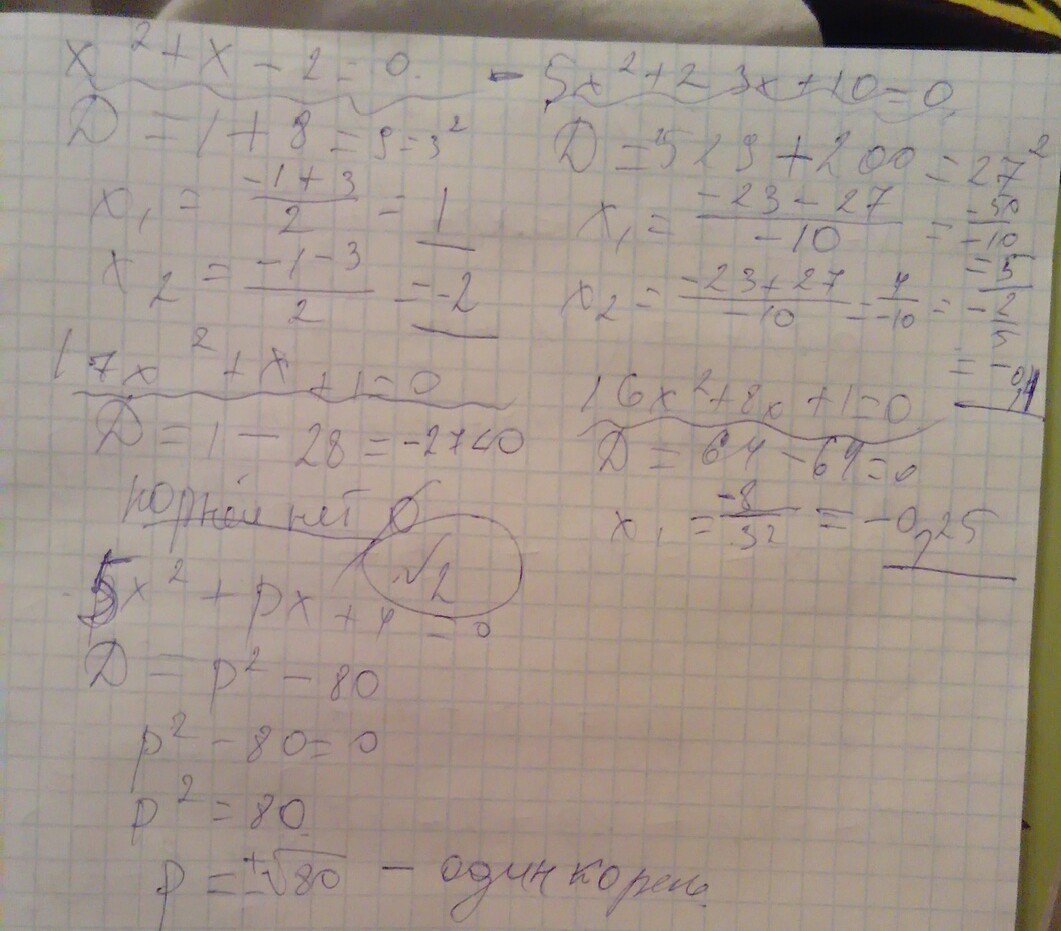 x² + x - 2 = 0.
D = 1 + 8 = 9 = 3²
x₁ = (-1+3)/2 = 1
x₂ = (-1-3)/2 = -2
-5x² + 23x + 10 = 0
D = 529 + 200 = 27²
x₁ = (-23-27)/-10 = -50/-10 = 5
x₂ = (-23+27)/-10 = 4/-10 = -2/5 = -0,4
17x² + x + 1 = 0
D = 1 - 28 = -27<0
корней нет
16x² + 8x + 1 = 0
D = 64 - 64 = 0
x₁ = -8/32 = -0,25
√2
5x² + px + 4 = 0
D = p² - 80
p² - 80 = 0
p² = 80
p = ±√80 - один корень